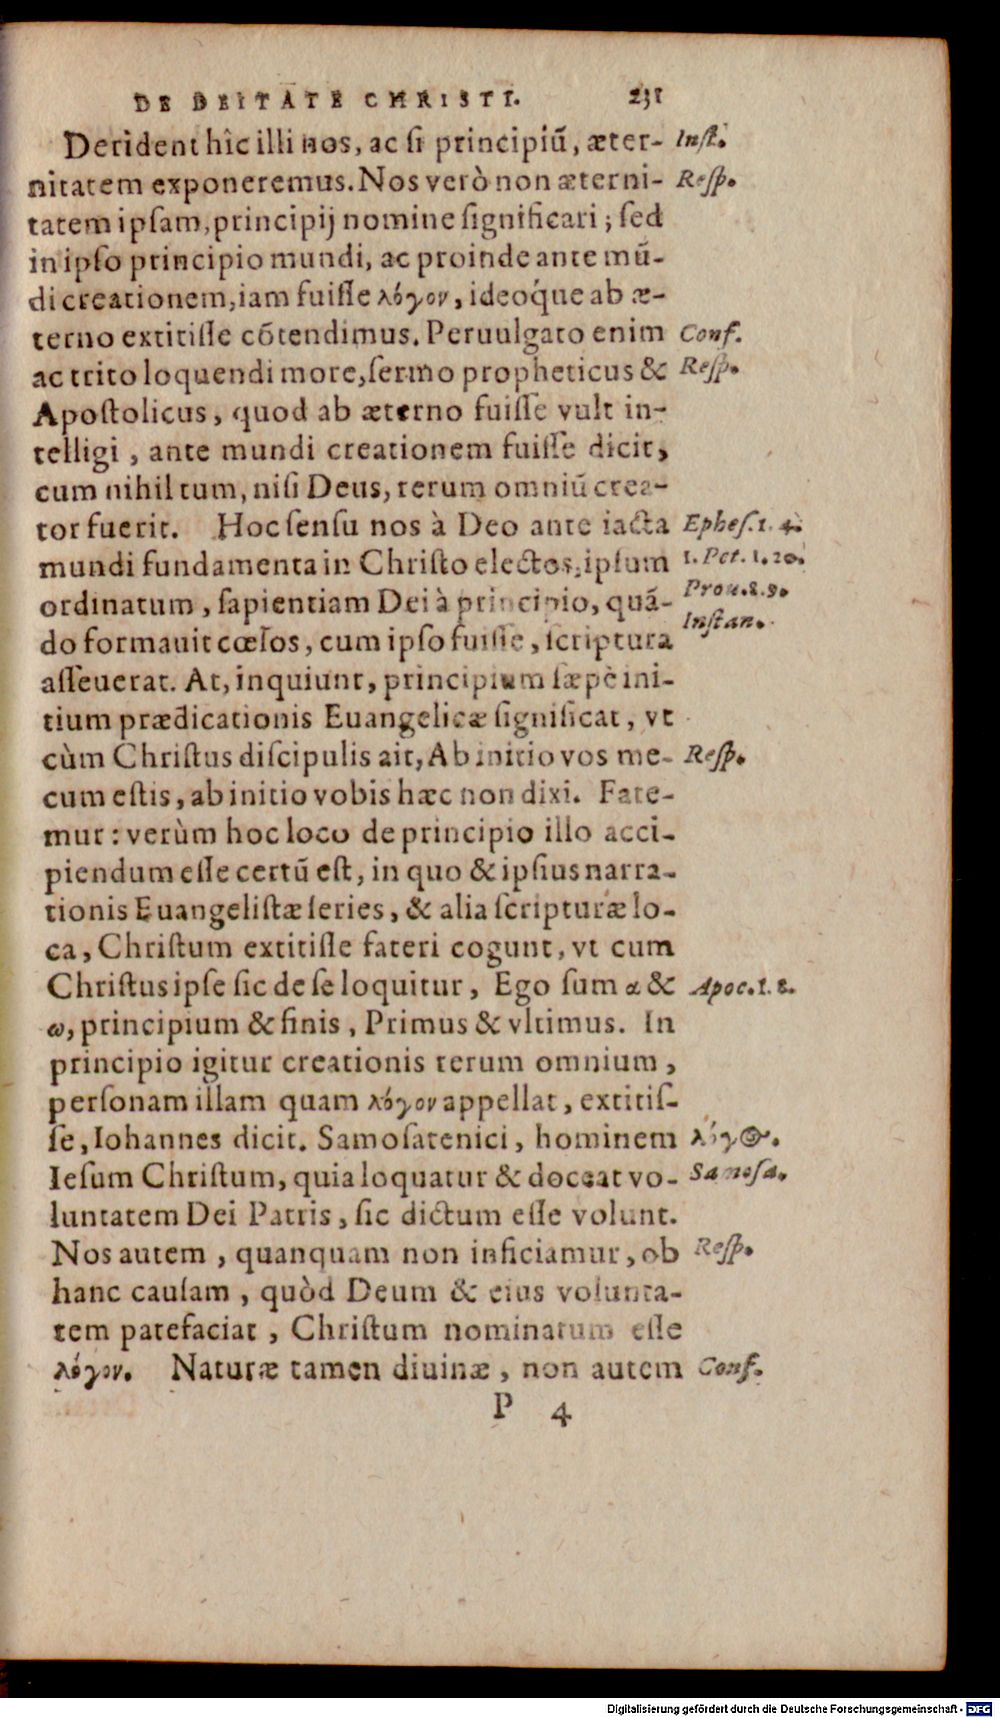 DE DEITATE CHRISTI. 231
Derident hîc illi nos, ac si principiũ, æter- Inst.
nitatem exponeremus. Nos verò non æterni- Resp.
tatem ipsam, principij nomine significari; sed
in ipso principio mundi, ac proinde ante mũ-
di creationem, iam fuisse λόγον, ideóque ab æ-
terno extitisse cõtendimus. Peruulgato enim Conf.
ac trito loquendi more, sermo propheticus & Resp.
Apostolicus, quod ab æterno fuisse vult in-
telligi, ante mundi creationem fuisse dicit,
cum nihil tum, nisi Deus, rerum omniũ crea-
tor fuerit. Hoc sensu nos à Deo ante iacta Ephes. 1. 4.
mundi fundamenta in Christo electos; ipsum 1. Pet. 1. 20.
ordinatum, sapientiam Dei à principio, quã- Prou. 8. 9.
do formauit cœlos, cum ipso fuisse, scriptura Instan.
asseuerat. At, inquiunt, principium sæpè ini-
tium prædicationis Euangelicæ significat, vt
cùm Christus discipulis ait, Ab initio vos me- Resp.
cum estis, ab initio vobis hæc non dixi. Fate-
mur: verùm hoc loco de principio illo acci-
piendum esse certũ est, in quo & ipsius narra-
tionis Euangelistæ series, & alia scripturæ lo-
ca, Christum extitisse fateri cogunt, vt cum
Christus ipse sic de se loquitur, Ego sum α & Apoc. 1. 8.
ω, principium & finis, Primus & vltimus. In
principio igitur creationis rerum omnium,
personam illam quam λόγον appellat, extitis-
se, Iohannes dicit. Samosatenici, hominem λόγος.
Iesum Christum, quia loquatur & doceat vo- Samosa.
luntatem Dei Patris, sic dictum esse volunt.
Nos autem, quanquam non inficiamur, ob Resp.
hanc causam, quòd Deum & eius volunta-
tem patefaciat, Christum nominatum esse
λόγον. Naturæ tamen diuinæ, non autem Conf.
P 4
Digitalisierung gefördert durch die Deutsche Forschungsgemeinschaft - DFG